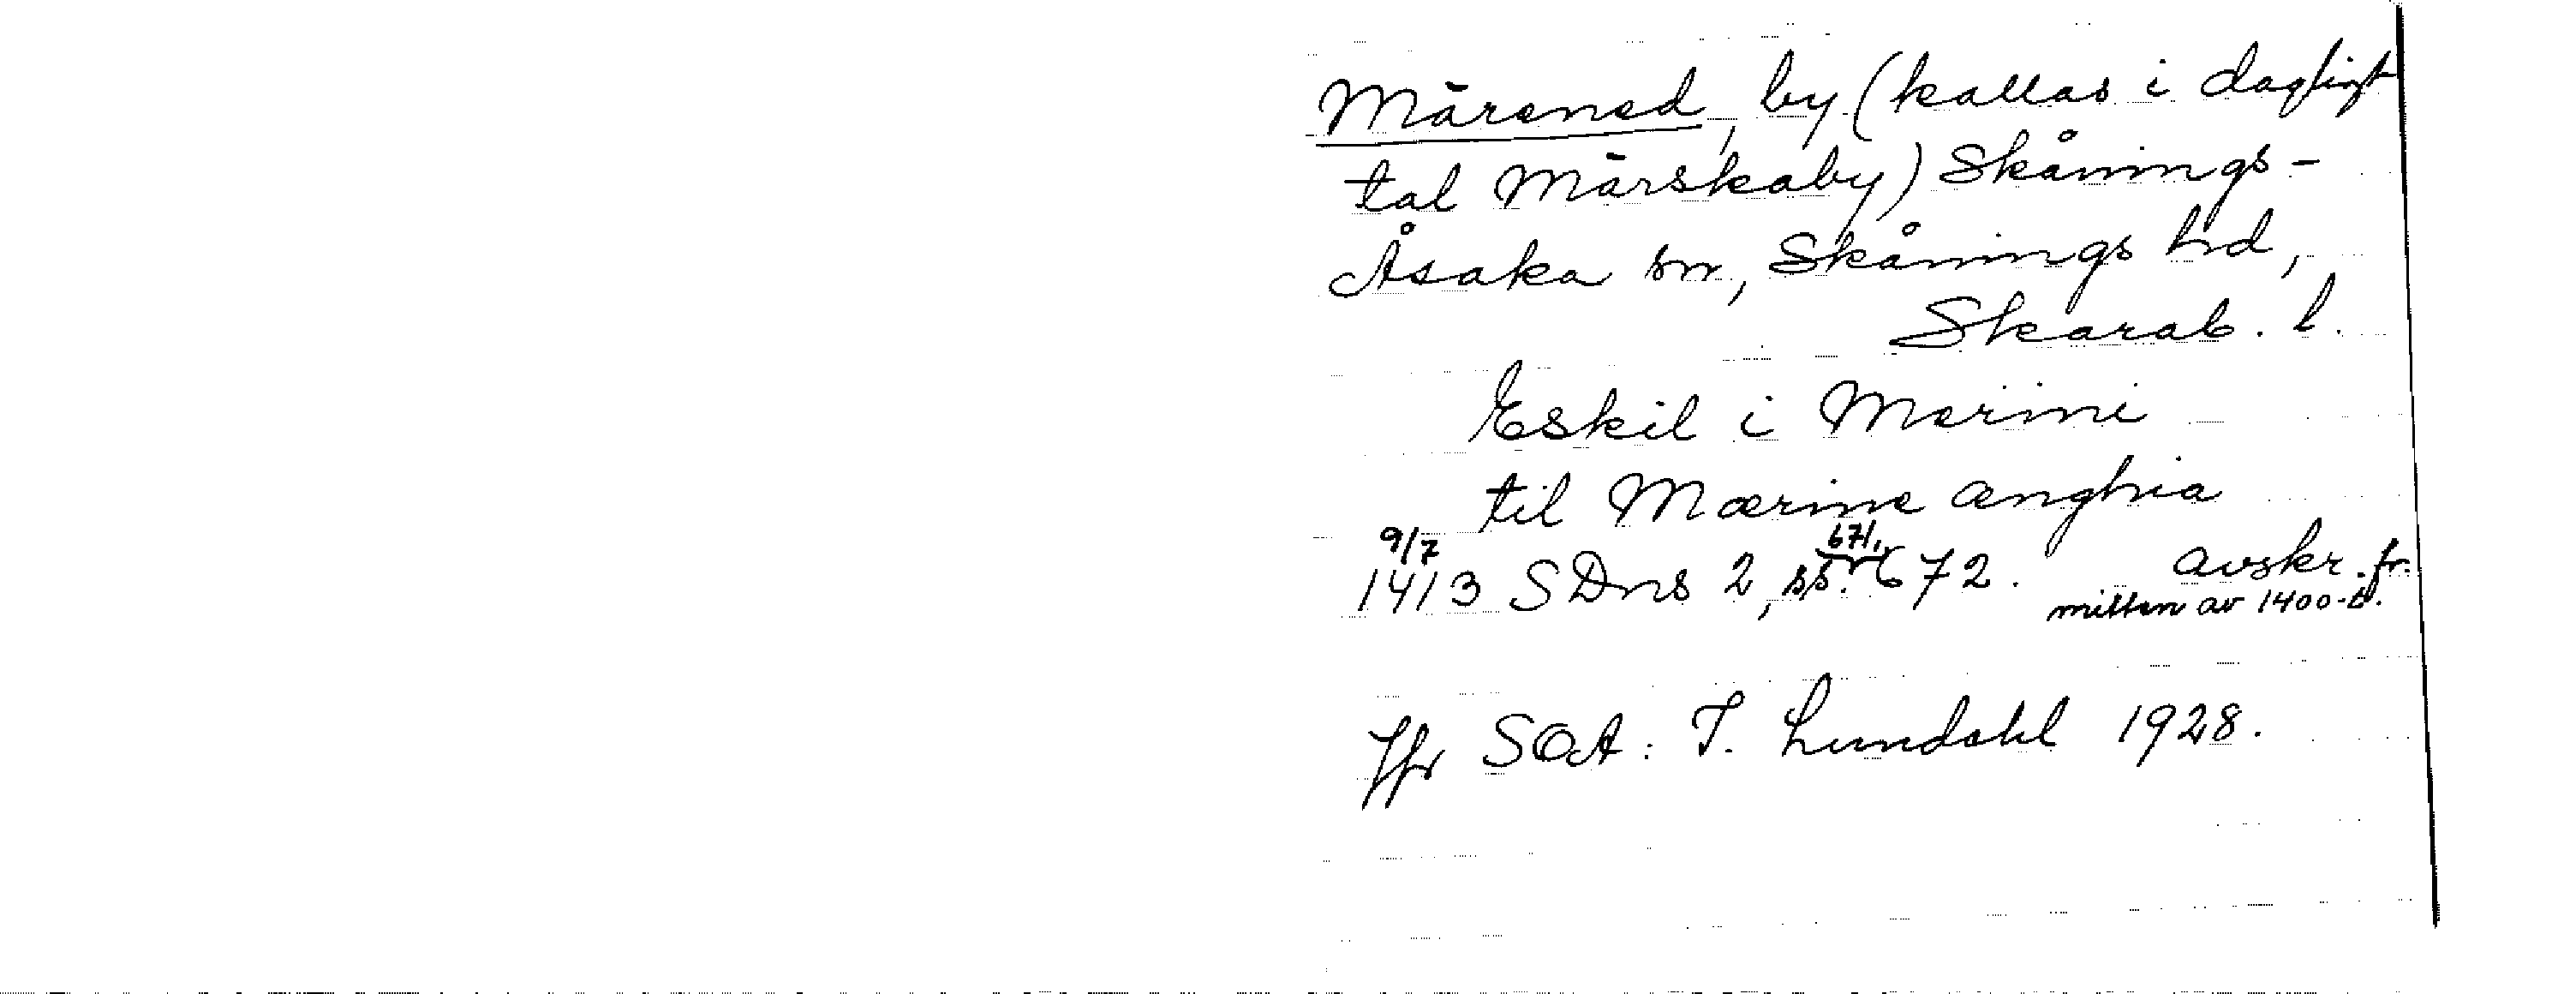 Märened, by (kallas i dagligt
tal Märskaby) Skånings-
Åsaka sn, Skånings hd,
Skarab. l.
Eskil i Merini
til Mærine ænghia
9/7
1413 SDns 2, ss. 671, 672. avskr. fr.
mitten av 1400-t.
Jfr SOA: I. Lundahl 1928.